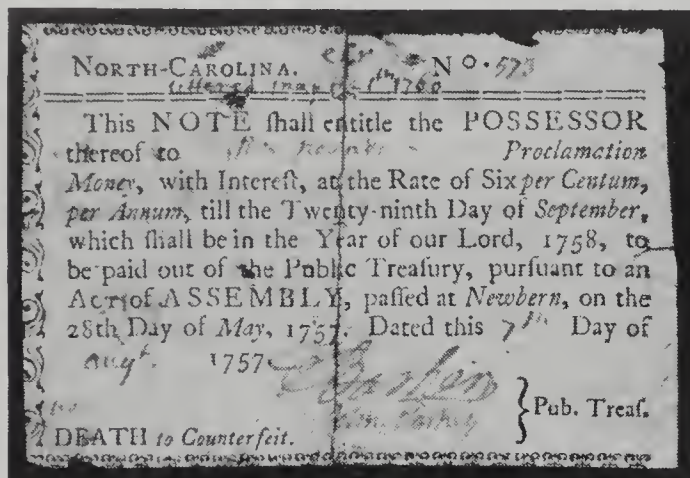 NORTH-CAROLINA. N o. 573
1760
This NOTE ſhall entitle the POSSESSOR
thereof to Proclamation
Money, with Intereſt, at the Rate of Six per Centum,
per Annum, till the Twenty-ninth Day of September,
which ſhall be in the Year of our Lord, 1758, to
be paid out of the Public Treaſury, purſuant to an
Act of ASSEMBLY, paſſed at Newbern, on the
28th Day of May, 1757. Dated this 7th Day of
augt. 1757
Pub. Treaſ.
DEATH to Counterfeit.